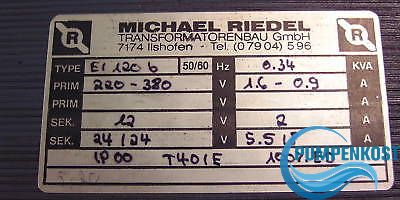 MICHAEL RIEDEL
TRANSFORMATORENBAU GmbH
7174 Ilshofen - Tel. (0 79 04) 5 96
R R
TYPE EI 120 b 50/60 Hz 0.34 KVA
PRIM 220-380 V 1.6-0.9 A
PRIM V A
SEK. 12 V 2 A
SEK. 24/24 V 5.5
IP00 T40/E
PUMPENKOST